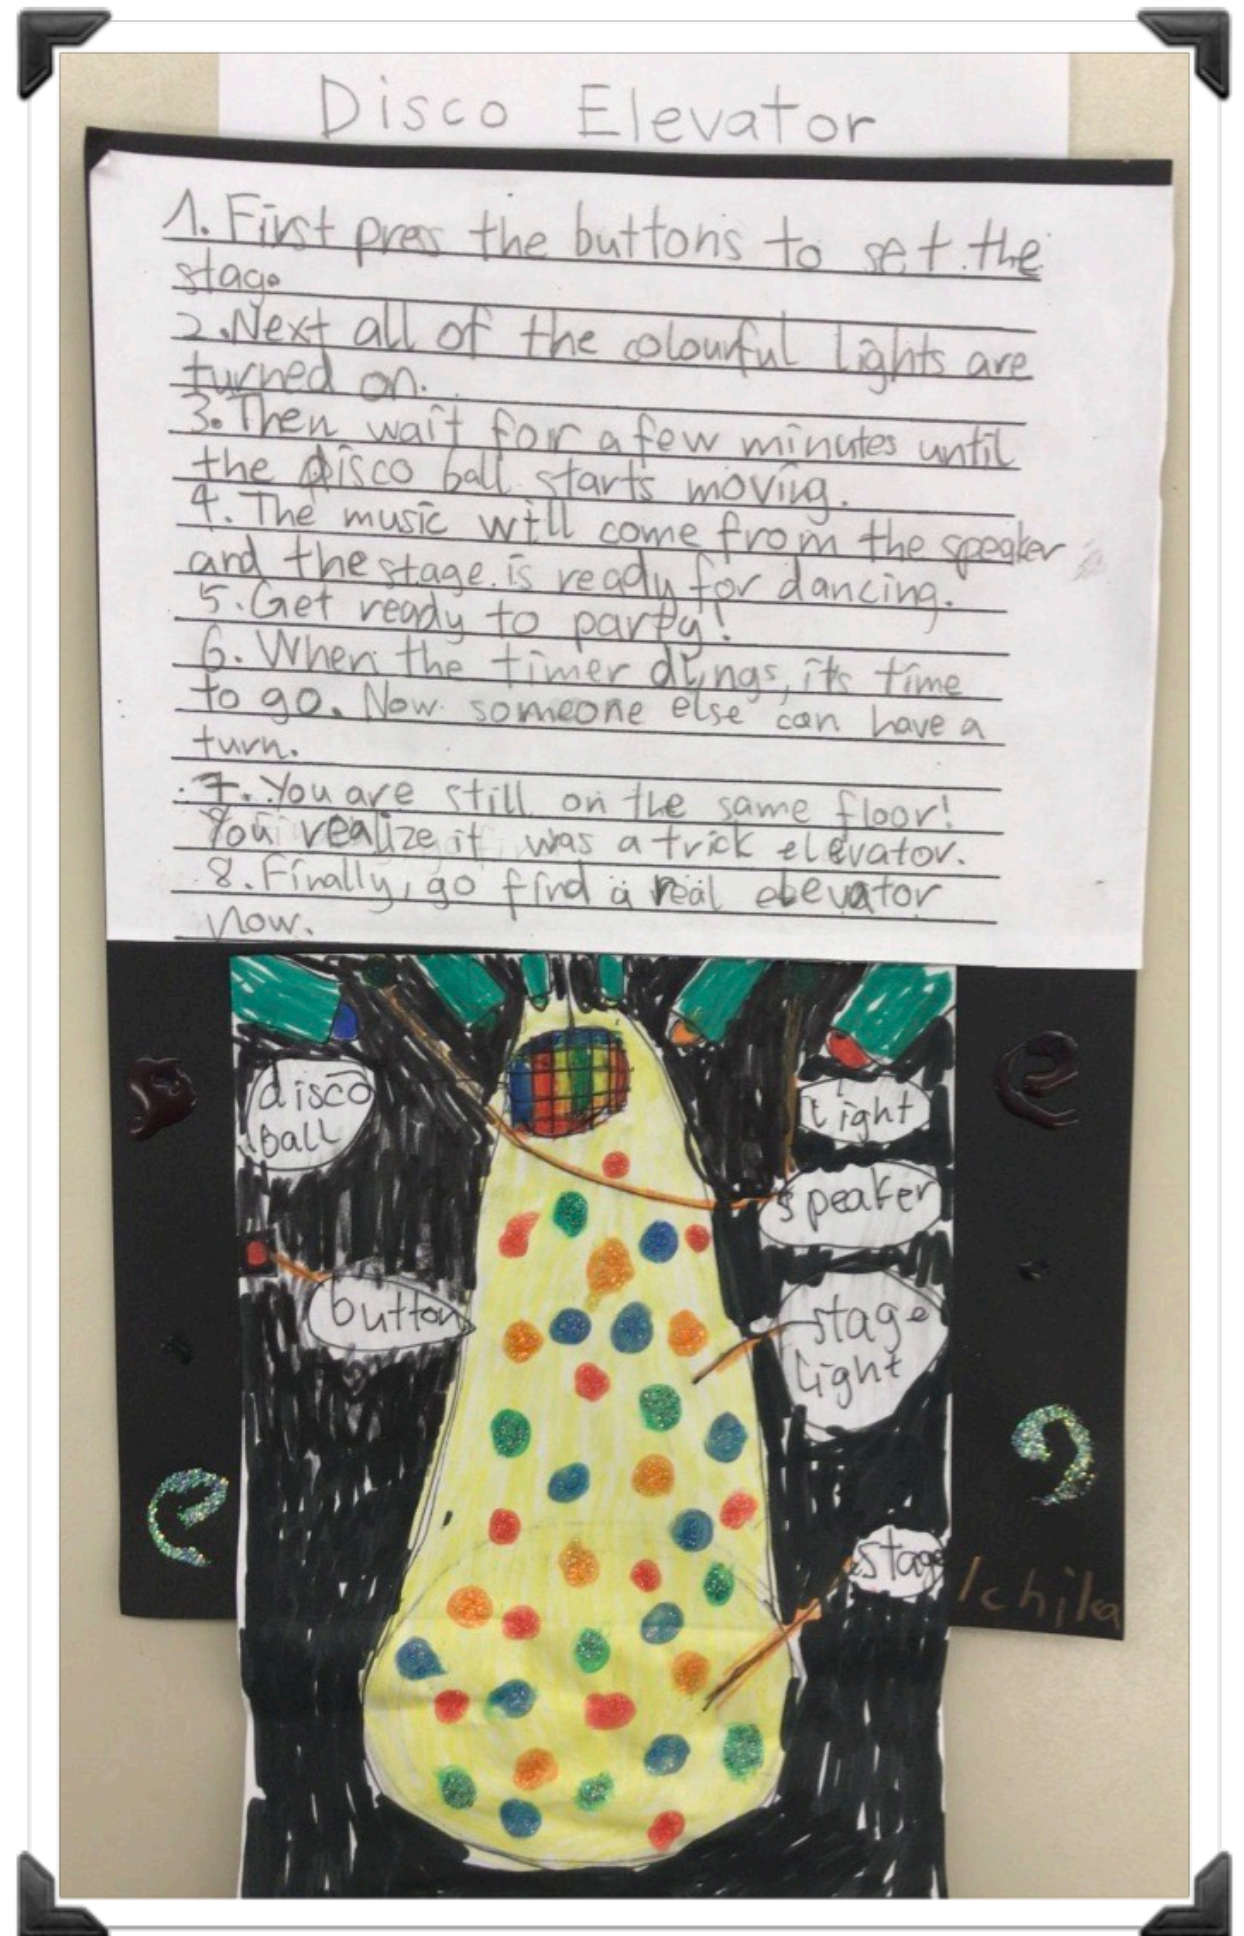 Disco Elevator
1. First press the buttons to set the
stage
2. Next all of the colourful lights are
turned on.
3. Then wait for a few minutes until
the disco ball starts moving.
4. The music will come from the speaker
and the stage is ready for dancing.
5. Get ready to party!
6. When the timer dings, it's time
to go. Now someone else can have a
turn.
7. You are still on the same floor!
You realize it was a trick elevator.
8. Finally, go find a real elevator
now.
disco
ball
light
speaker
button
stage
light
stage
Ichika